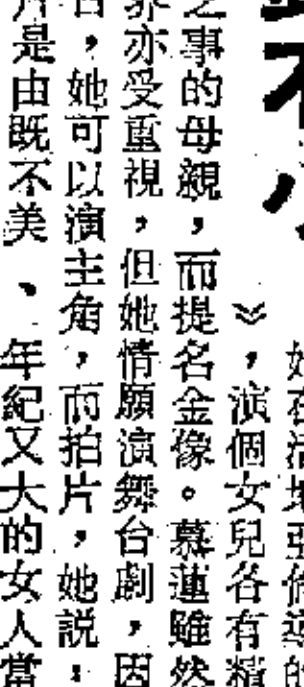 不
她在活地亞倫導的
》，演個女兒各有精
之事的母親，而提名金像。慕蓮雖然
界亦受重視，但她情願演舞台劇，因
，她可以演主角，而拍片，她説：
片是由既不美、年紀又大的女人當